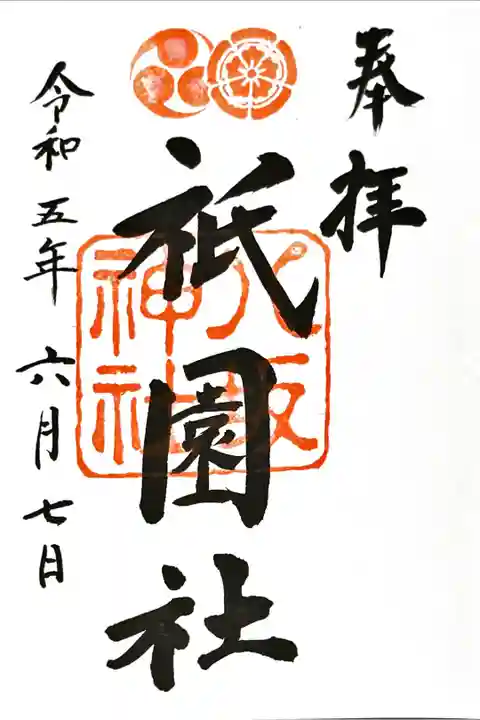 奉拝
八坂
神社
祇園社
令和五年六月七日